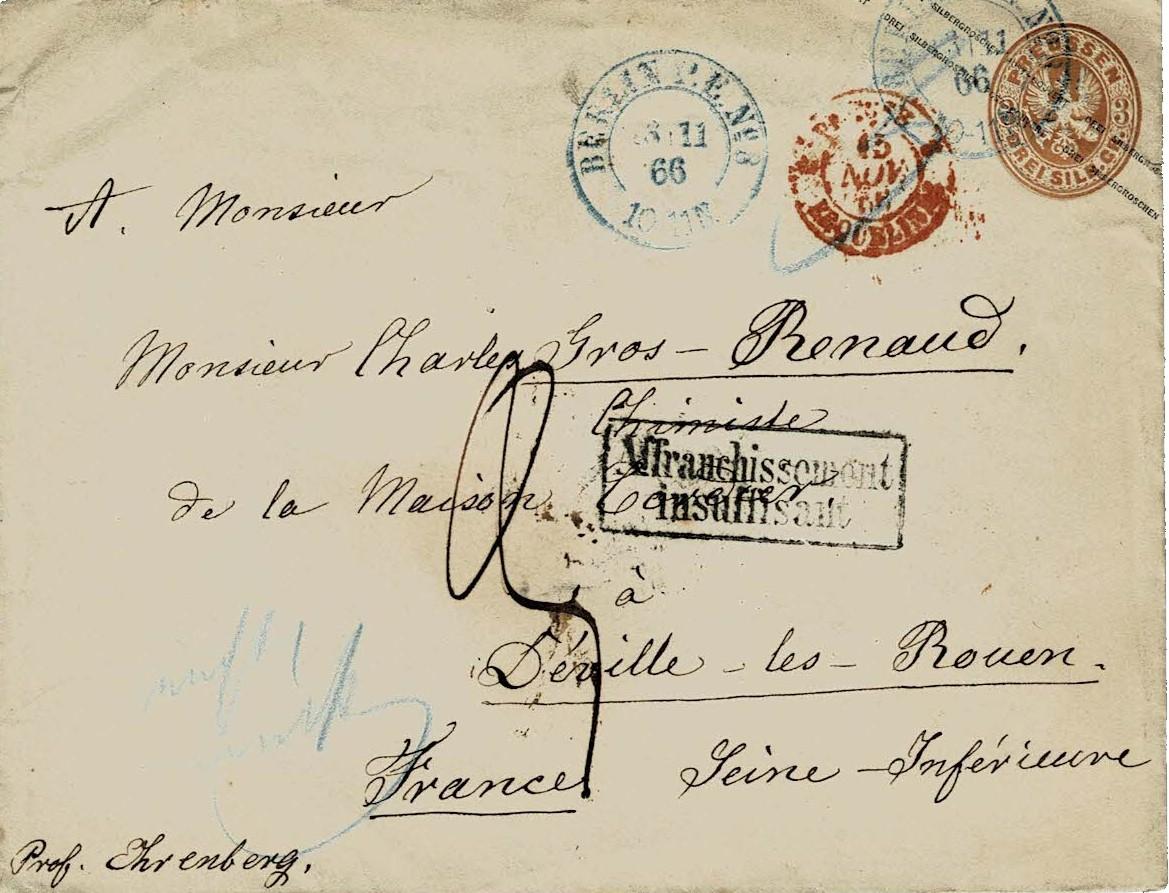 DREI SILBERGROSCHEN
DREI SILBERGROSCHEN
11
66
10-11
PREUSSEN
3
DREI SILB. GR.
BERLIN P.E. No 8
11
66
10-11
15
NOV
A. Monsieur
Monsieur Charles Gros-Renaud.
Chimiste
de la Maison
Affranchissement
insuffisant
à
Déville-les-Rouen.
France Seine-Inférieure
Prof. Ehrenberg.